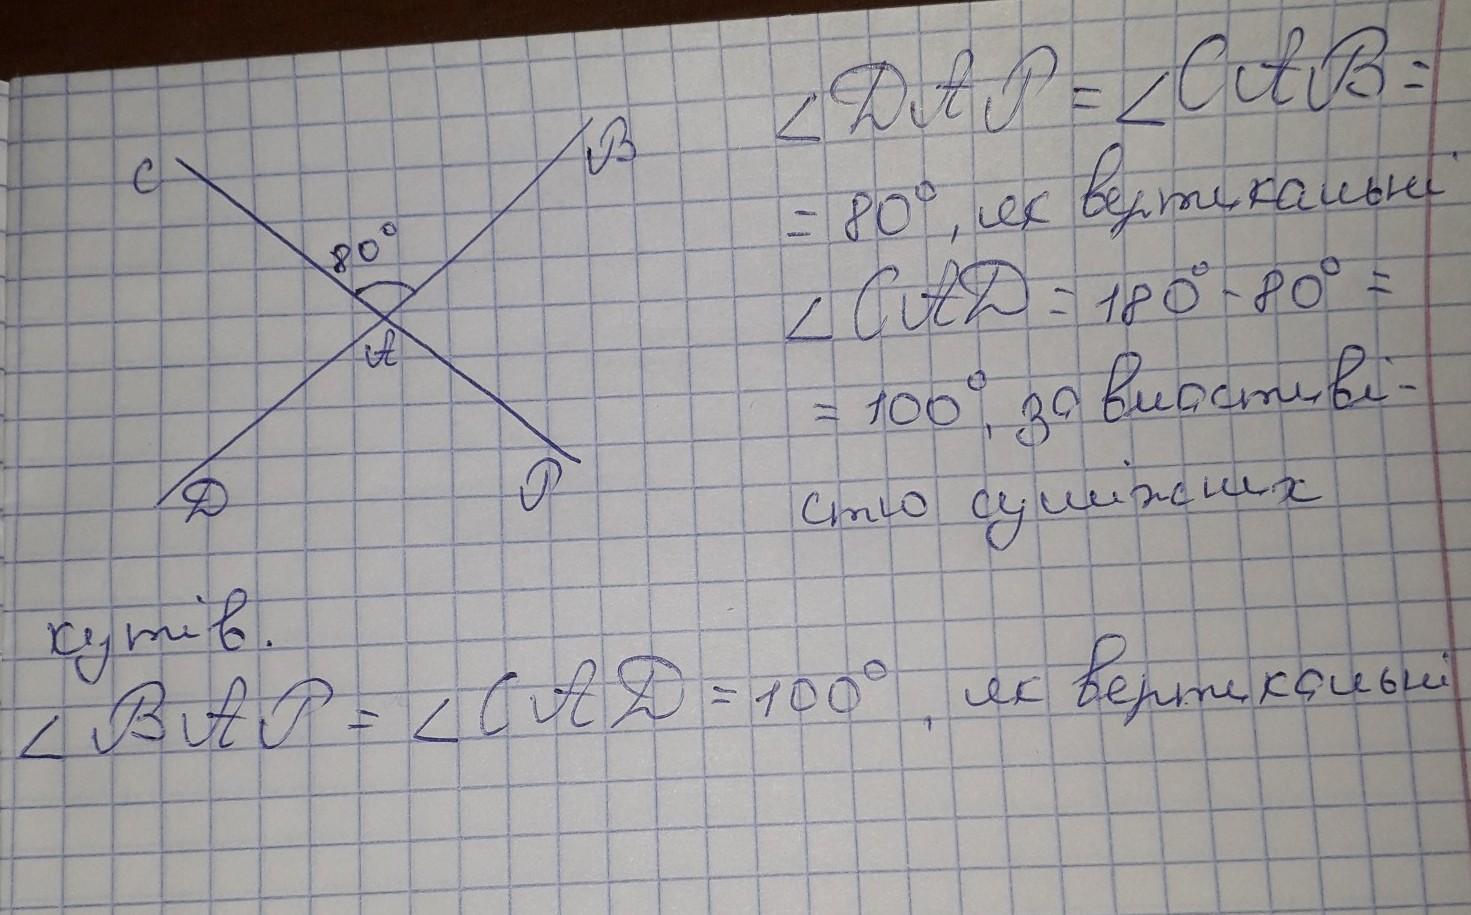 C
B
80°
A
D
P
∠DAP = ∠CAB =
= 80°, як вертикальні
∠CAD = 180° - 80° =
= 100°, за властиві-
стю суміжних
кутів.
∠BAP = ∠CAD = 100°, як вертикальні